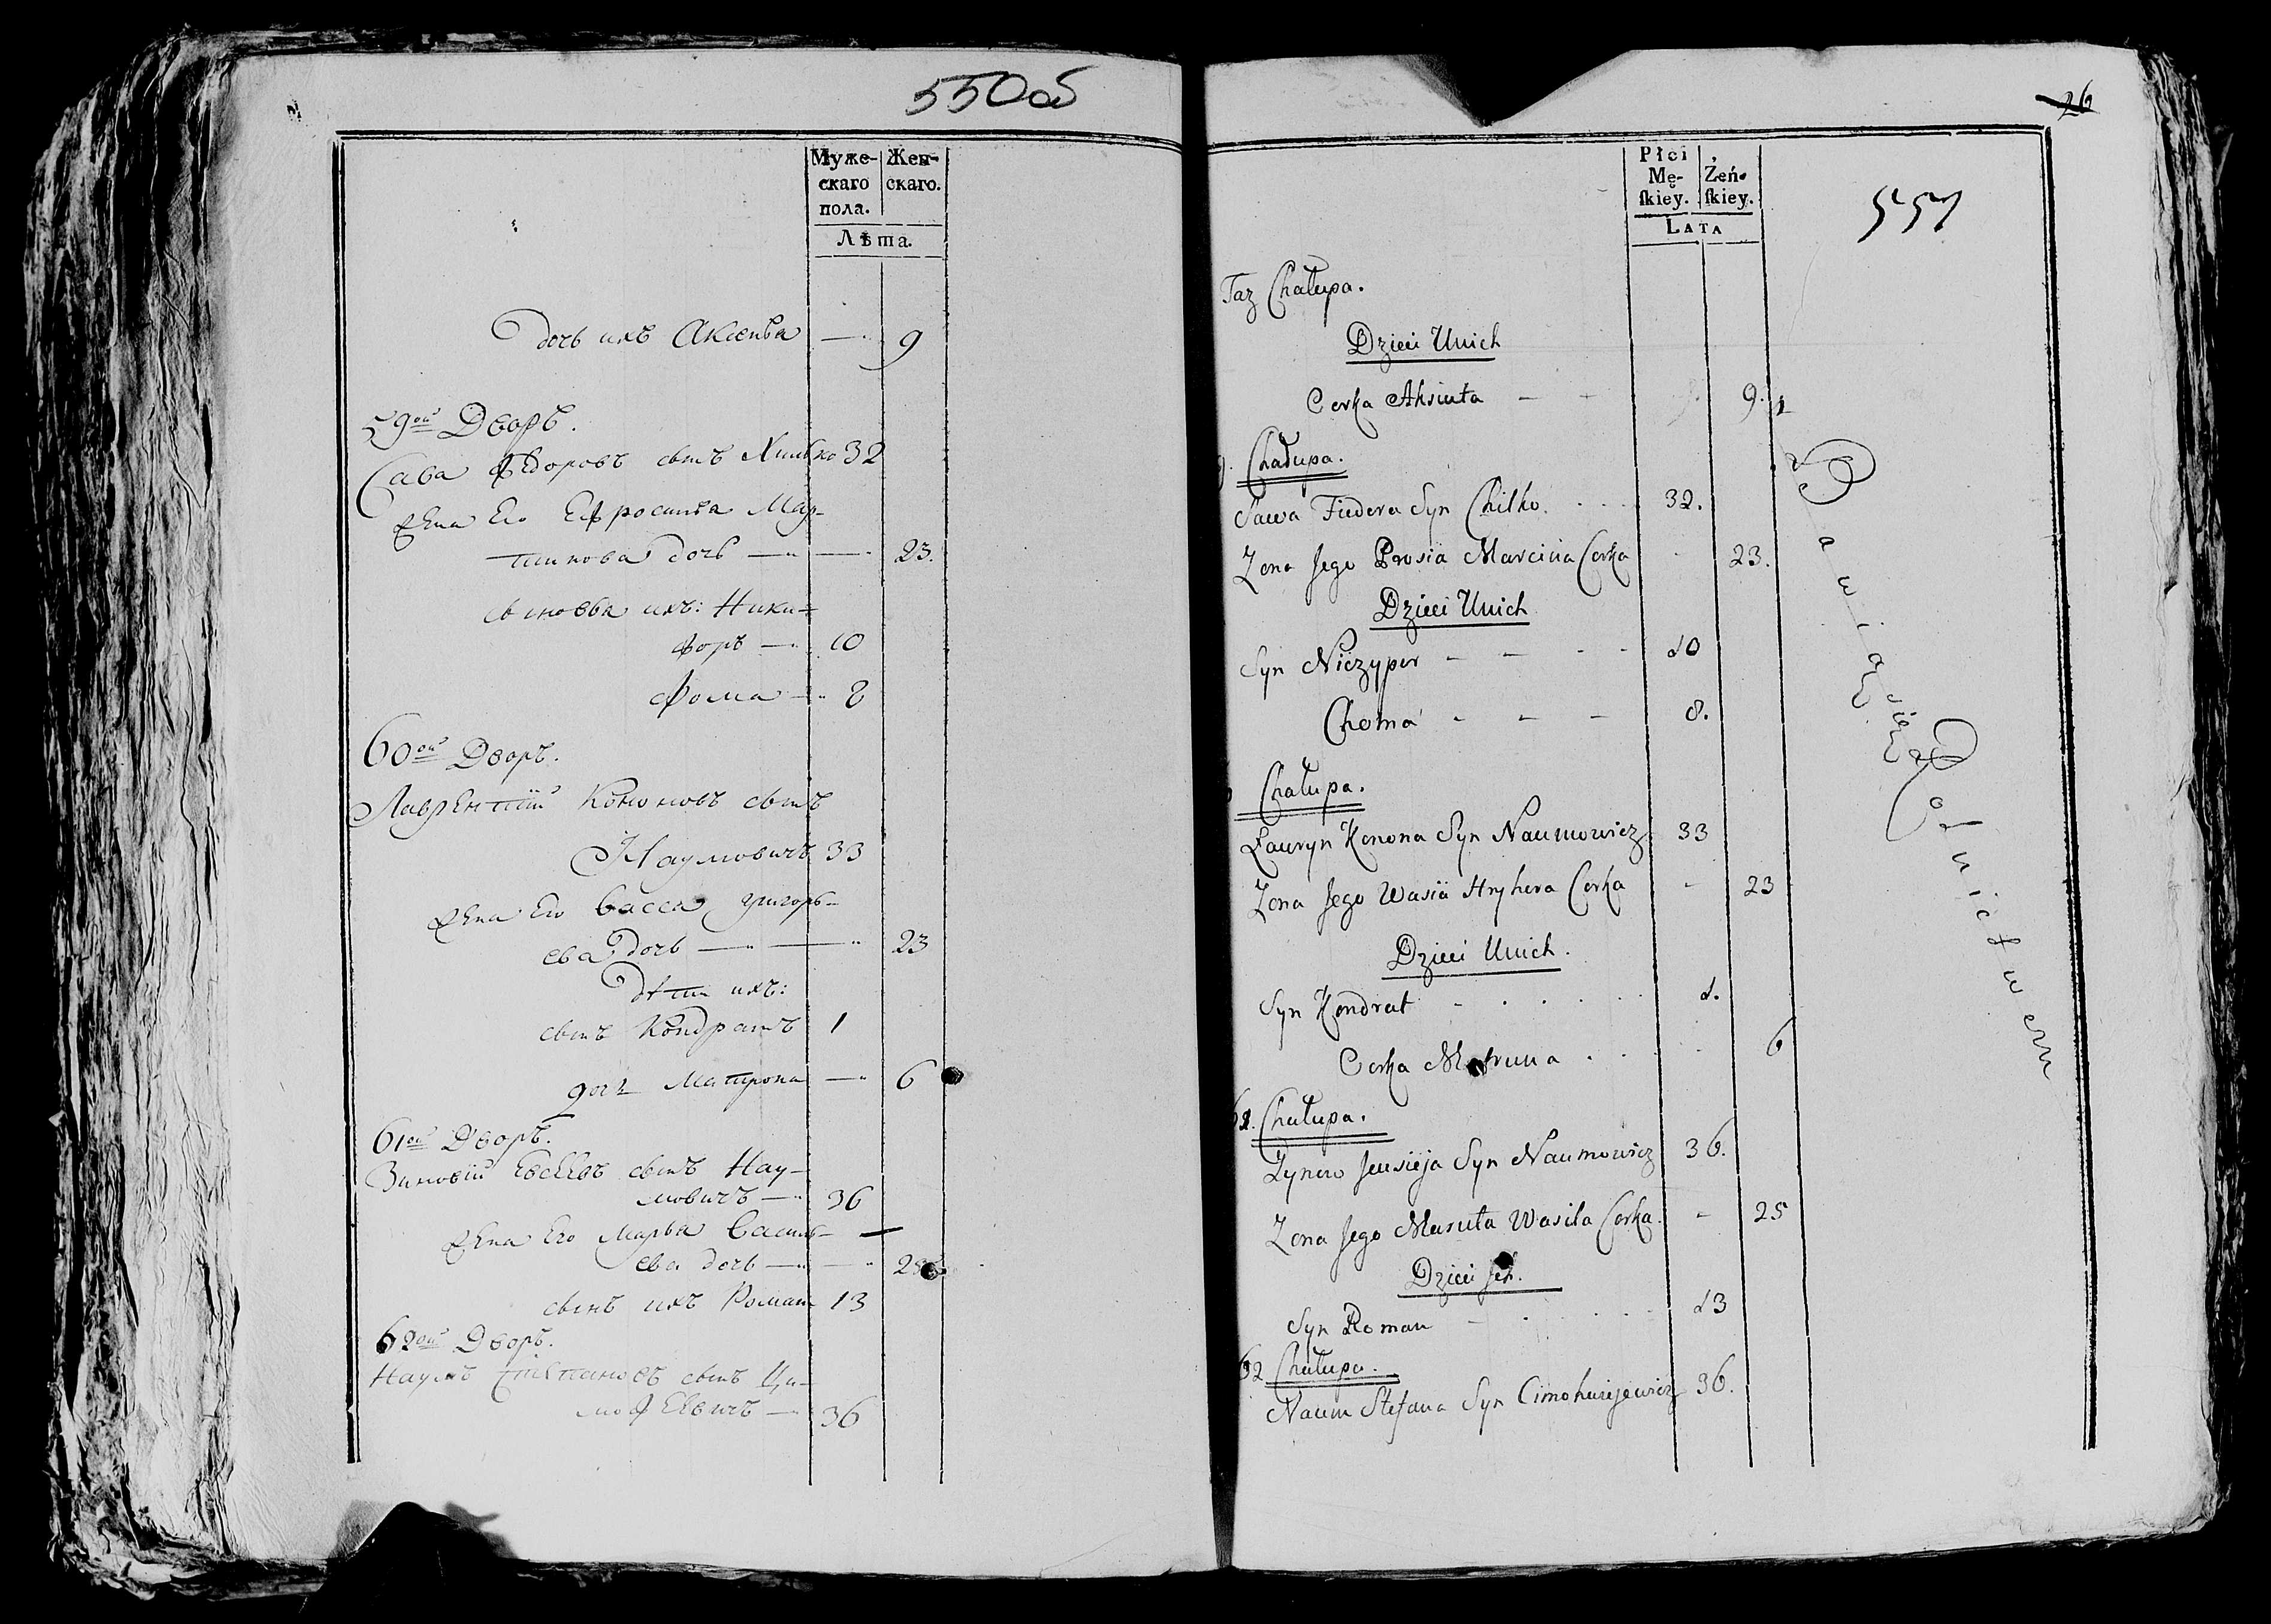 550об
Муже-
скаго
пола.
Жен-
скаго.
Лѣта.
Дочь ихъ Аксенья — 9
59ой Дворъ.
Сава Ѳедоровъ сынъ Хилько 32
жена Его Ефросинья Мар-
тинова дочь — — 23.
сыновья ихъ: Ники-
форъ — 10
Фома — 8
60ой Дворъ.
Лаврентий Кононовъ сынъ
Наумовичъ 33
жена Его Васса Григорь-
ева дочь — — 23
Дѣти ихъ:
сынъ Кондратъ 1
дочь Матрона — 6
61ой Дворъ.
Зиновий Евсѣевъ сынъ Нау-
мовичъ — 36
жена Его Марья Василь-
ева дочь — — 25
сынъ ихъ Романъ 13
62ой Дворъ.
Наумъ Степановъ сынъ Ци-
мофеевичъ — 36
26
Płci
Mę-
ſkiey.
Żeń-
ſkiey.
LATA
551
Taz Chałupa.
Dzieci Unich
Corka Aksiuta - - 9.
Chałupa.
Sawa Fiedora Syn Chilko. 32.
Zona Jego Prosia Marcina Corka - 23.
Dzieci Unich
Syn Niczypor - - - - 10
Choma - - - 8.
Chałupa.
Ławryn Konona Syn Naumowicz 33
Zona Jego Wasia Hryhora Corka - 23
Dzieci Unich.
Syn Kondrat - 1.
Corka Matruna 6
61. Chałupa.
Zynow Jewsieja Syn Naumowicz 36.
Zona Jego Maruta Wasila Corka. - 25
Dzieci Ich.
Syn Roman - 13
62 Chałupa.
Naum Stefana Syn Cimohwiejewicz 36.